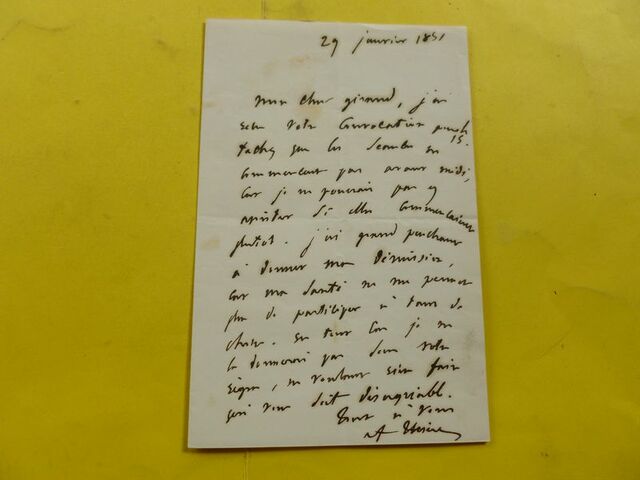 29 janvier 1851
Mon cher giraud, j'ai
reçu votre convocation pour le
15.
tachez que les séances ne
commencent pas avant midi,
car je ne pourrais pas y
assister si elles commençaient
plutot. j'ai grand penchant
à donner ma démission,
car ma santé ne me permet
plus de participer à tant de
choses. en tout cas je ne
la donnerai pas sans votre
signe, ne voulant rien faire
qui vous soit désagréable.
tout à vous
A Thiers